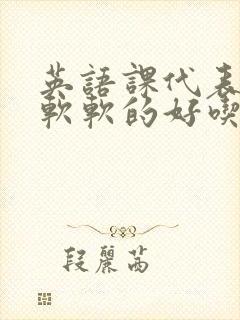 英語課代表
軟軟的好喫
段麗茜